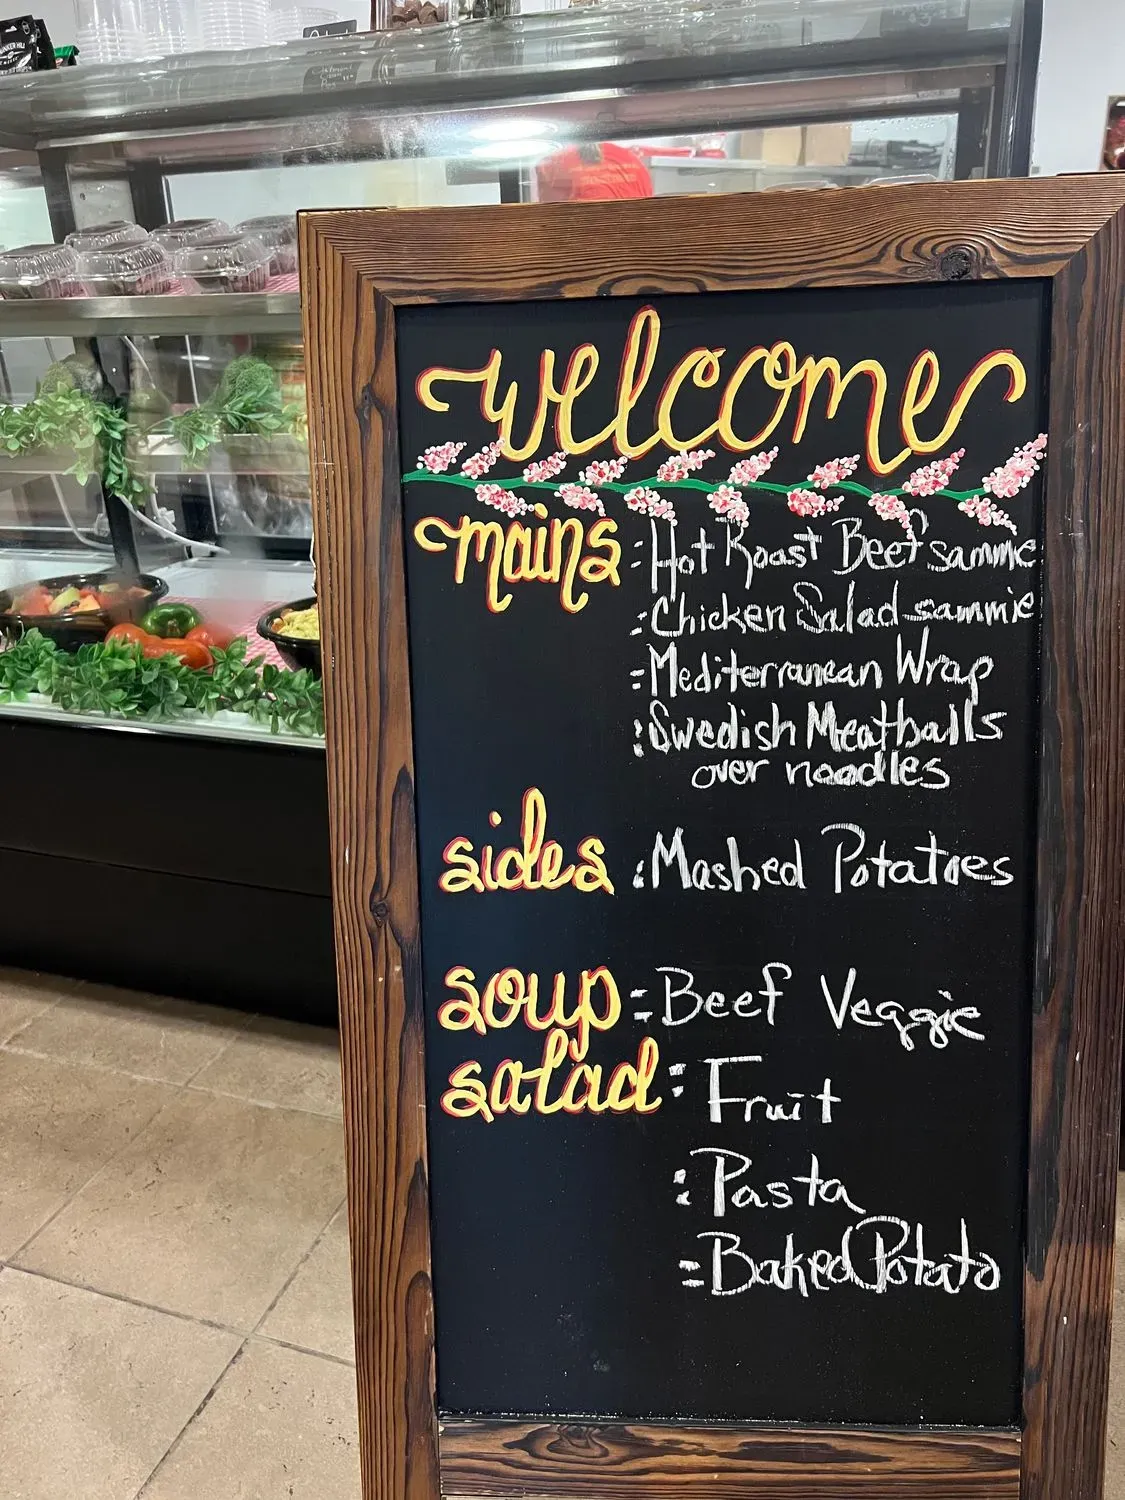 welcome
mains :Hot Roast Beef sammie
:Chicken Salad sammie
:Mediterranean Wrap
:Swedish Meatballs
over noodles
sides :Mashed Potatoes
soup :Beef Veggie
salad : Fruit
:Pasta
:Baked Potato